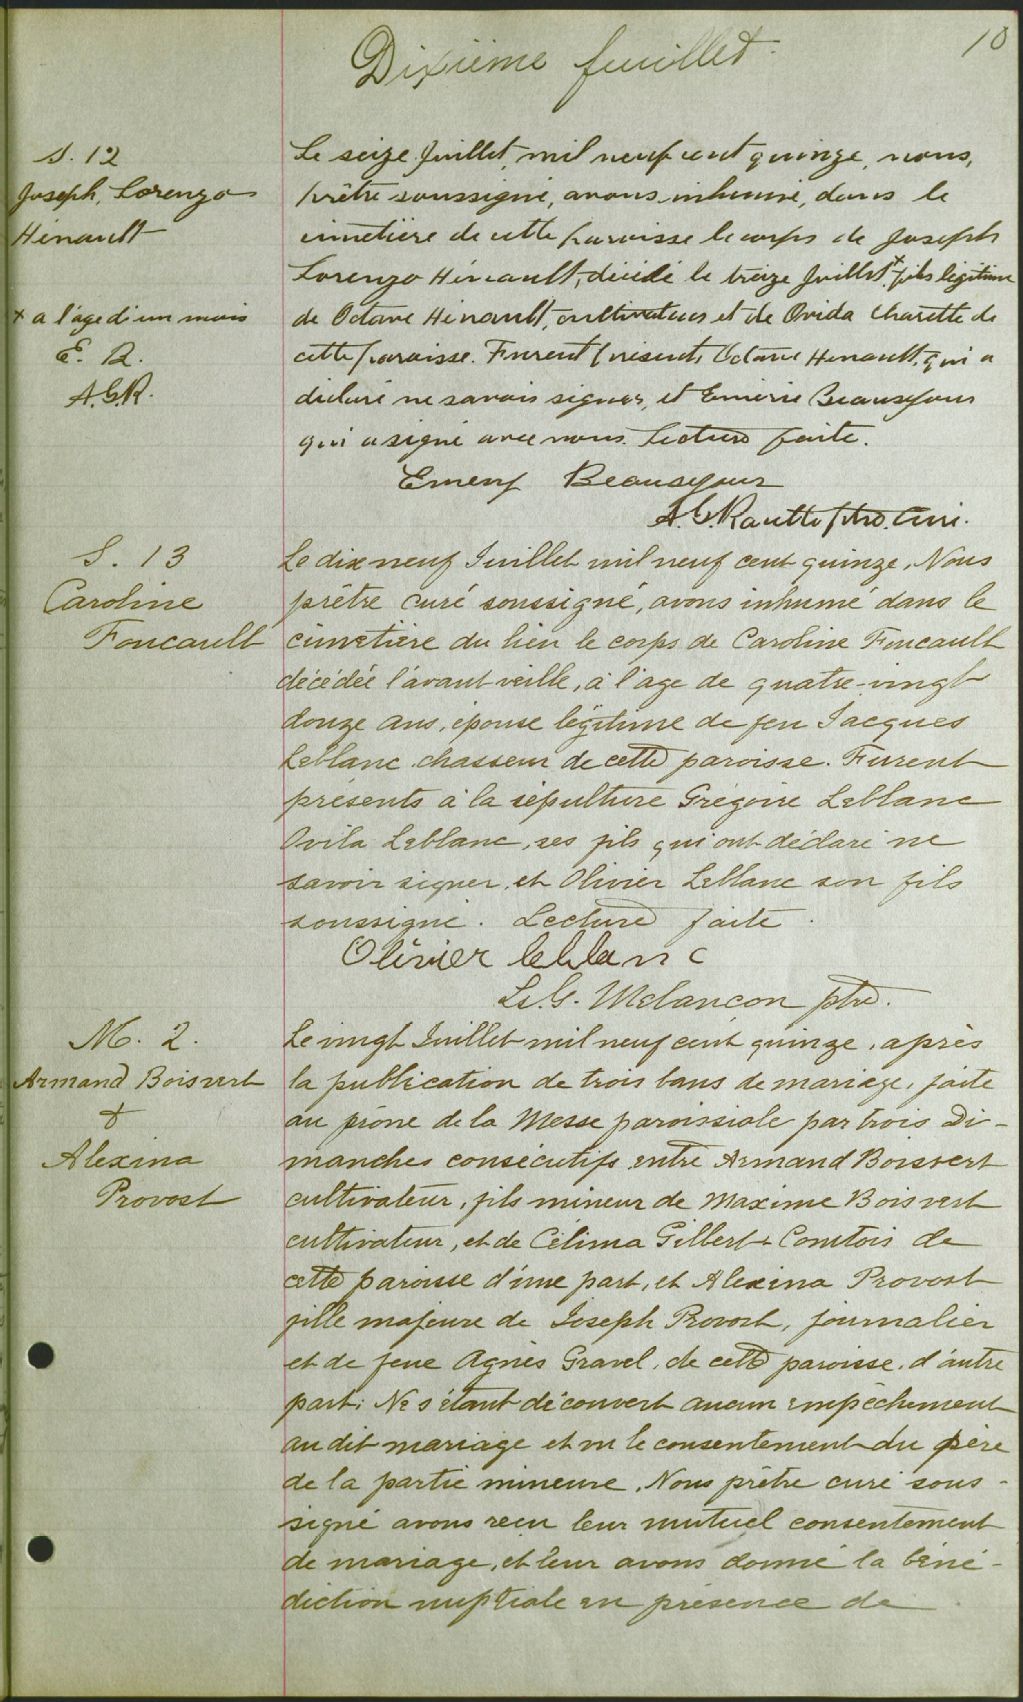 10
Dixième feuillet
S. 12
Joseph, Lorenzo
Hénault
x a l'age d'un mois
E. B.
A.G.R.
Le seize Juillet, mil neuf cent quinze, nous,
prêtre soussigné, avons inhumé, dans le
cimetière de cette paroisse le corps de Joseph
Lorenzo Hénault, décédé le treize Juillet x fils légitime
de Octave Hénault, cultivateur et de Ovida Charette de
cette paroisse. Furent présents Octave Hénault, qui a
déclaré ne savoir signer, et Emérie Beauséjour
qui a signé avec nous. Lecture faite.
Emery Beausejour
Ptre. Curé.
S. 13
Caroline
Foucault
Le dix neuf Juillet mil neuf cent quinze, Nous
prêtre curé soussigné, avons inhumé dans le
cimetière du lieu le corps de Caroline Foucault
décédée l'avant veille, à l'age de quatre-vingt
douze ans, épouse légitime de feu Jacques
Leblanc chasseur de cette paroisse. Furent
présents à la sépulture Grégoire Leblanc
Ovila Leblanc, ses fils qui ont déclaré ne
savoir signer, et Olivier Leblanc son fils
soussigné. Lecture faite.
Olivier leblanc
Ls. G. Melancon ptre.
M. 2.
Armand Boisvert
&
Alexina
Provost
Le vingt Juillet mil neuf cent quinze, après
la publication de trois bans de mariage, faite
au prône de la Messe paroissiale par trois Di-
manches consécutifs entre Armand Boisvert
cultivateur, fils mineur de Maxime Boisvert
cultivateur, et de Célima Gilbert-Comtois de
cette paroisse d'une part, et Alexina Provost
fille majeure de Joseph Provost, journalier
et de feue Agnès Gravel, de cette paroisse, d'autre
part; Ne s'étant découvert aucun empêchement
au dit mariage et vu le consentement du père
de la partie mineure, Nous prêtre curé sous-
signé avons reçu leur mutuel consentement
de mariage, et leur avons donné la béné-
diction nuptiale en présence de